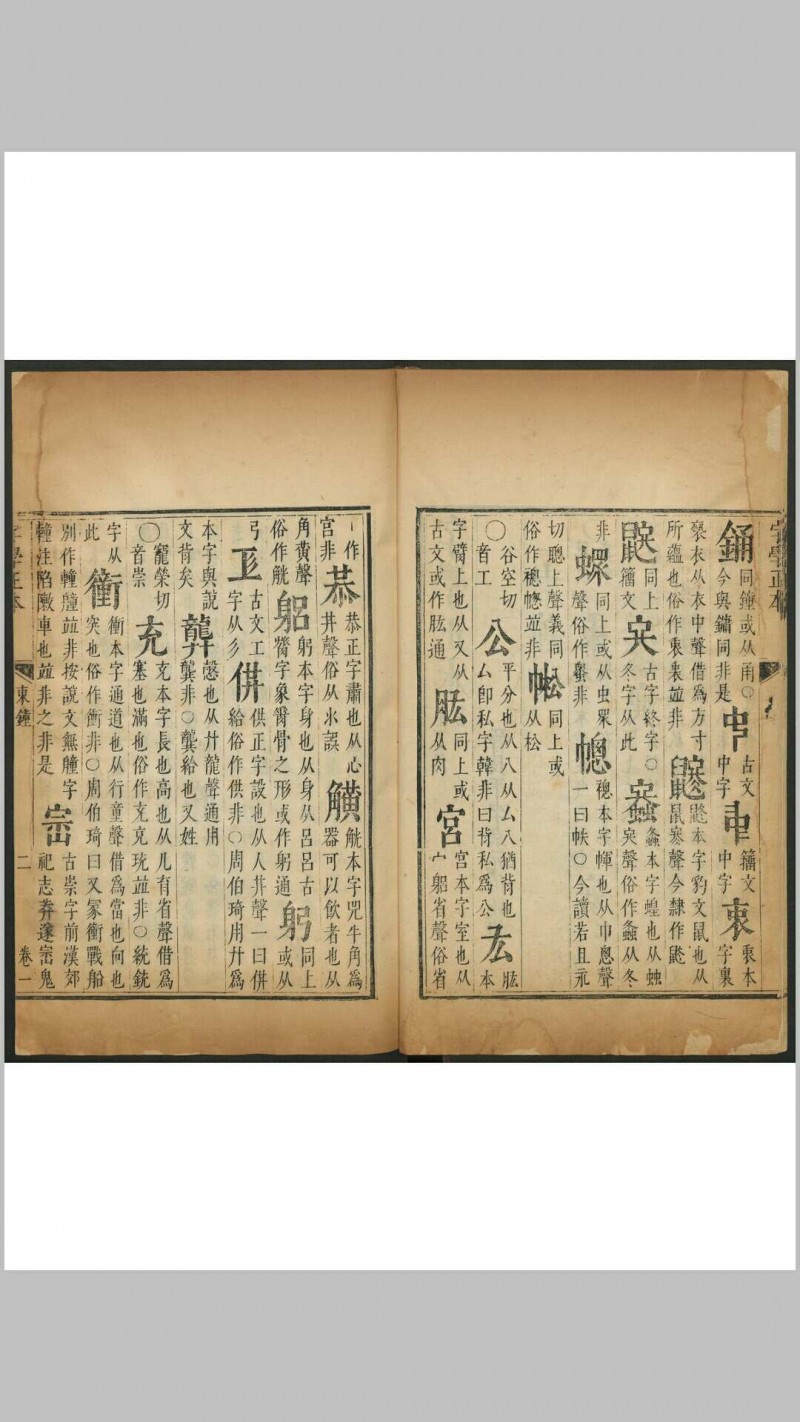 字學正本
銿 同鐘或从甬○今與鏞同非是 𠁧 古文中字 𠁩 籀文中字 衷 衷本字裏
褻衣从衣中聲借爲方寸所蘊也俗作衷竝非 鼨 鼨本字豹文鼠也从鼠聲今隸作鼨
同上籀文 古字終字○冬字从此 螽本字蝗也从䖵聲俗作螽从冬
非 同上或从虫眾聲俗作螽非 幒 幒本字幝也从巾悤聲一曰帙○今讀若且汞
切聰上聲義同俗作竝非 㡆 同上或从松
○谷空切音工 公 平分也从八从厶八猶背也厶即私字韓非曰背私爲公 厷 肱本
字臂上也从又从古文或作肱通 肱 同上或从肉 宮 宮本字室也从宀躳省聲俗省
丨作宮非 恭 恭正字肅也从心共聲俗从水誤 觵 觥本字兕牛角爲器可以飲者也从
角黄聲俗作觥 躳 躬本字身也从身从呂呂古膂字象膂骨之形或作躬通 躬 同上或从
弓 古文工字从彡 供 供正字設也从人共聲一曰供給俗作供非○周伯琦用廾爲
本字與說文背矣 龏 愨也从廾龍聲通用龔非○龔給也又姓
○寵榮切音崇 充 充本字長也高也从儿育省聲借爲塞也滿也俗作充竝非○統銃
字从此 衝 衝本字通道也从行童聲借爲當也向也突也俗作衝非○周伯琦曰又冢衝戰船
別作䡴艟竝非按說文無艟字䡴注陷敶車也竝非之非是 古崇字前漢郊祀志莽遂鬼
字學正本 東鐘 二 卷一